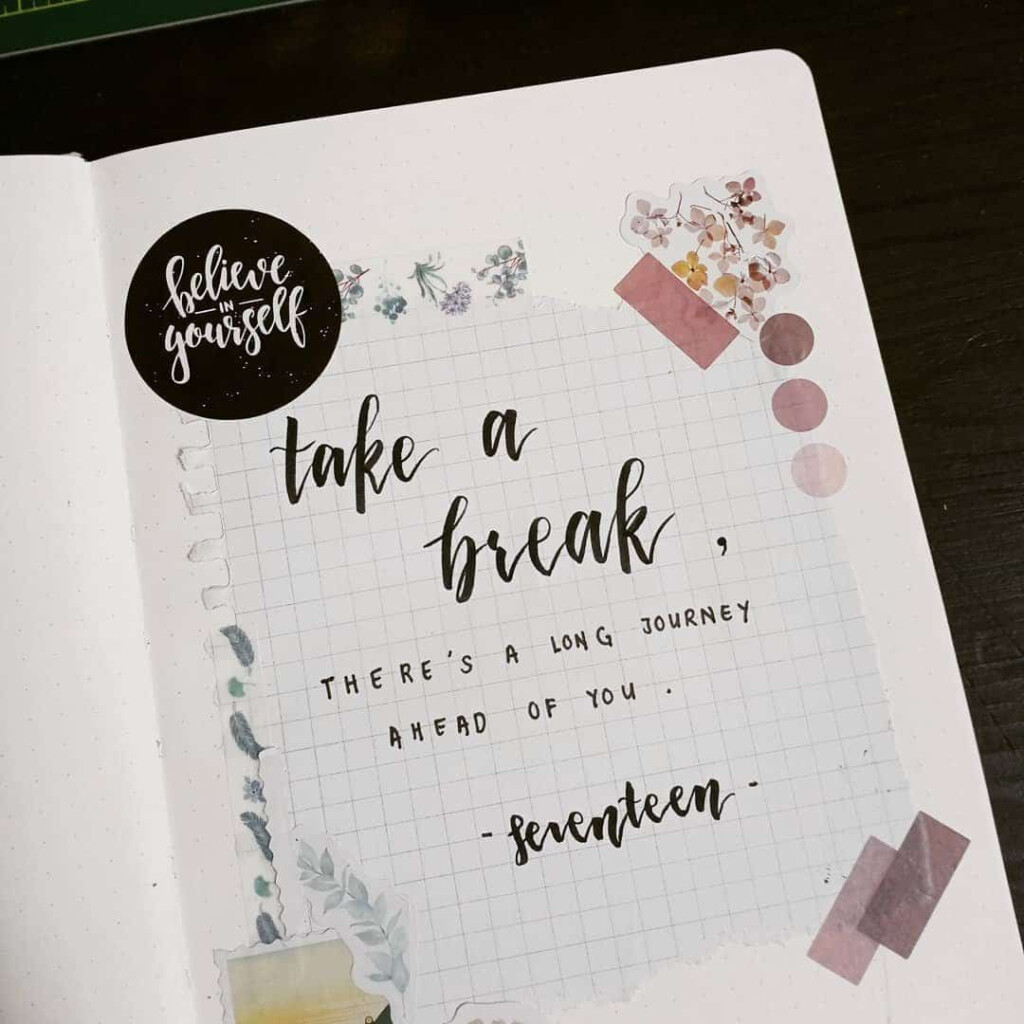 believe
IN
yourself
take a
break,
THERE'S A LONG JOURNEY
AHEAD OF YOU.
-seventeen-